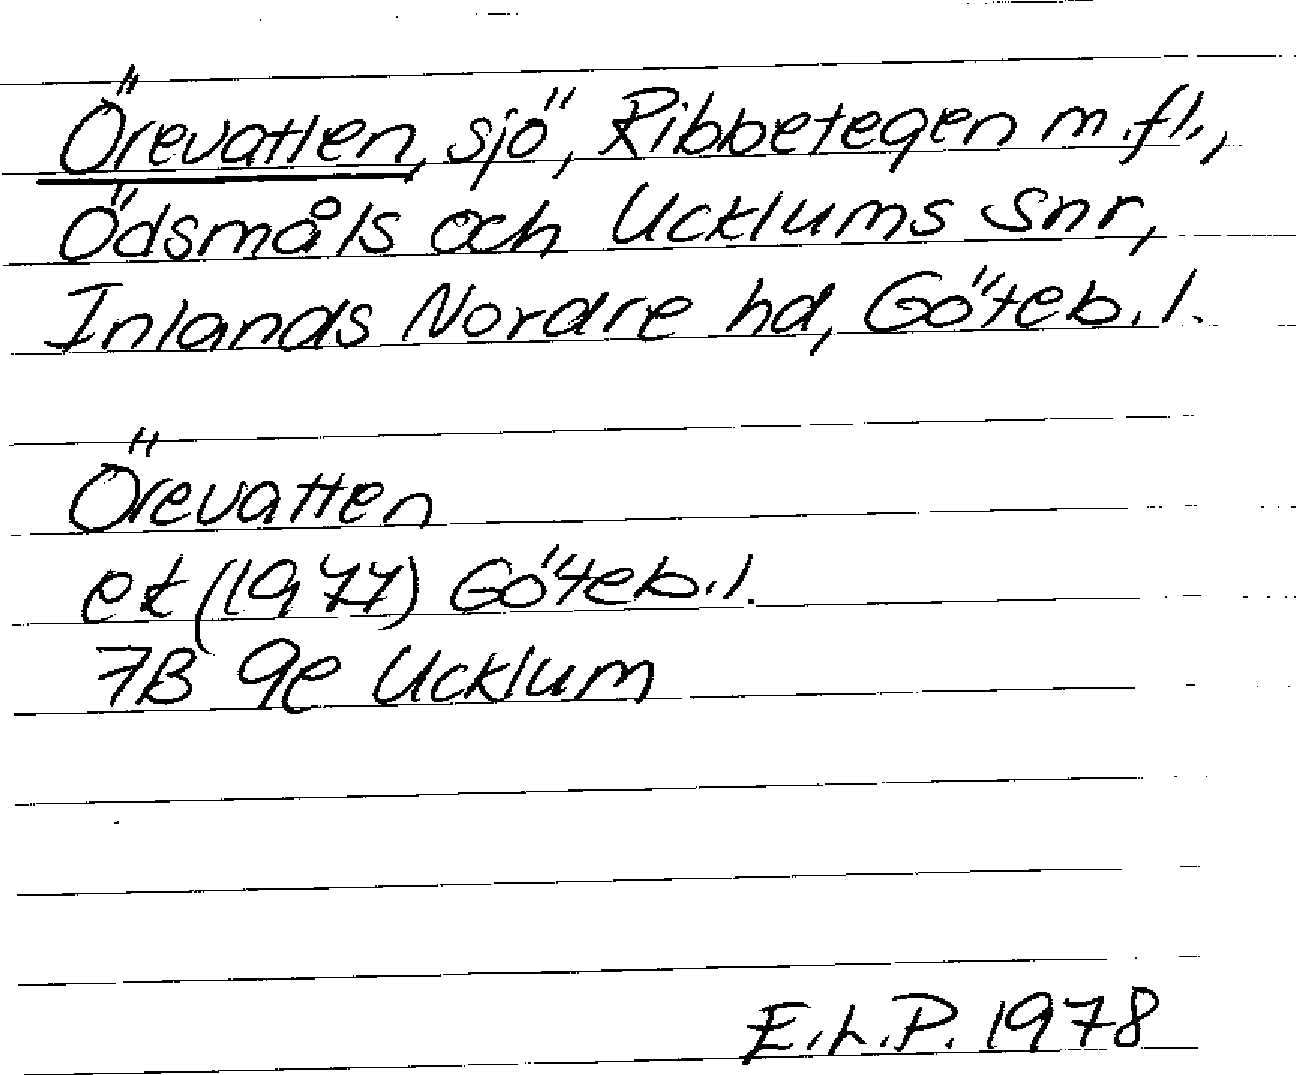 Örevatten, sjö, Ribbetegen m.fl.,
Ödsmåls och Ucklums Snr,
Inlands Nordre hd, Göteb.l.
Örevatten
ek (1977) Göteb.l.
7B 9e Ucklum
E.L.P. 1978